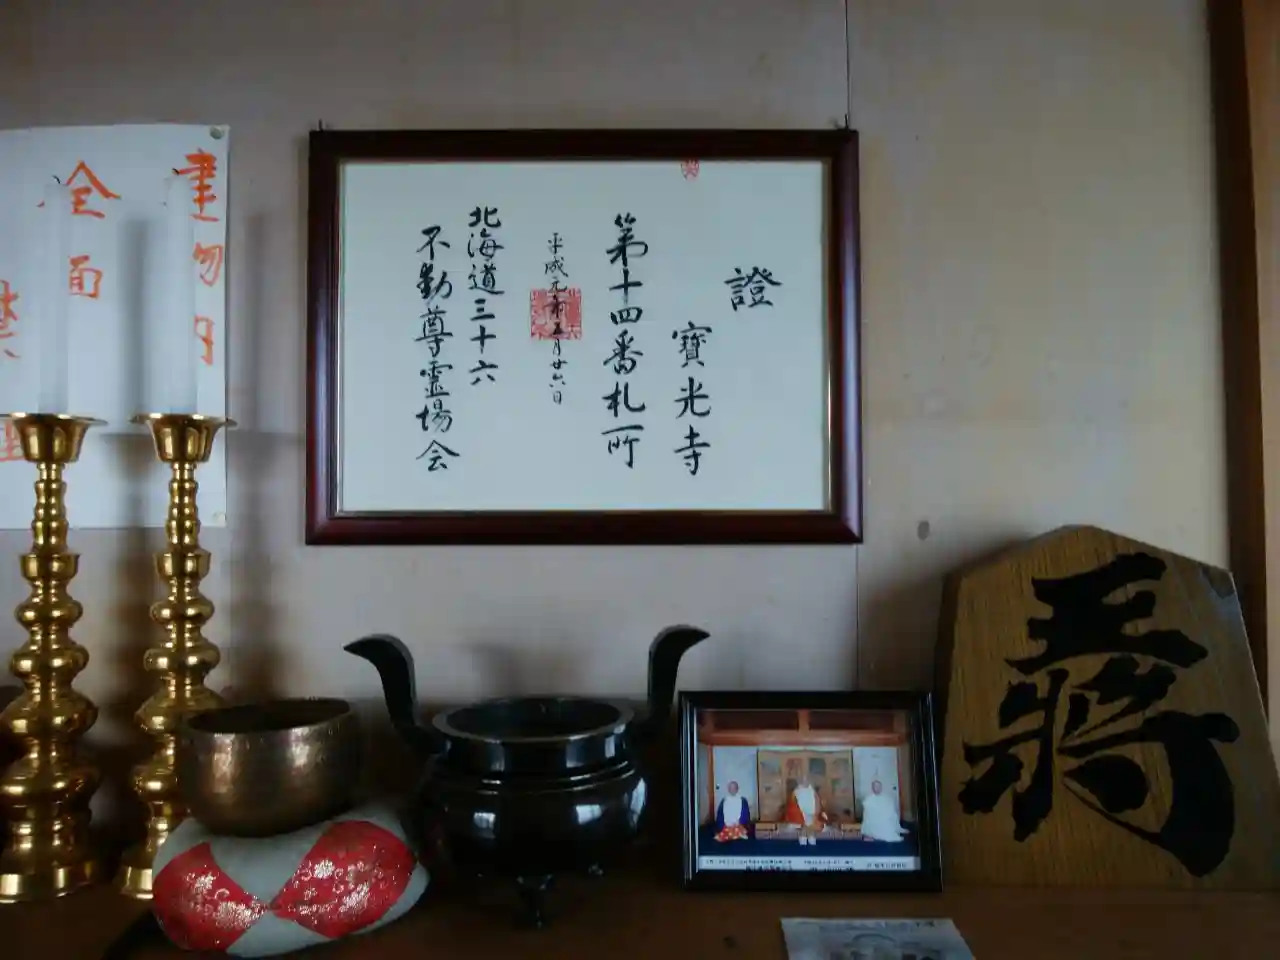 證
寶光寺
第十四番札所
平成元年五月廿六日
北海道三十六
不動尊霊場会
建物内
全面
禁
王将